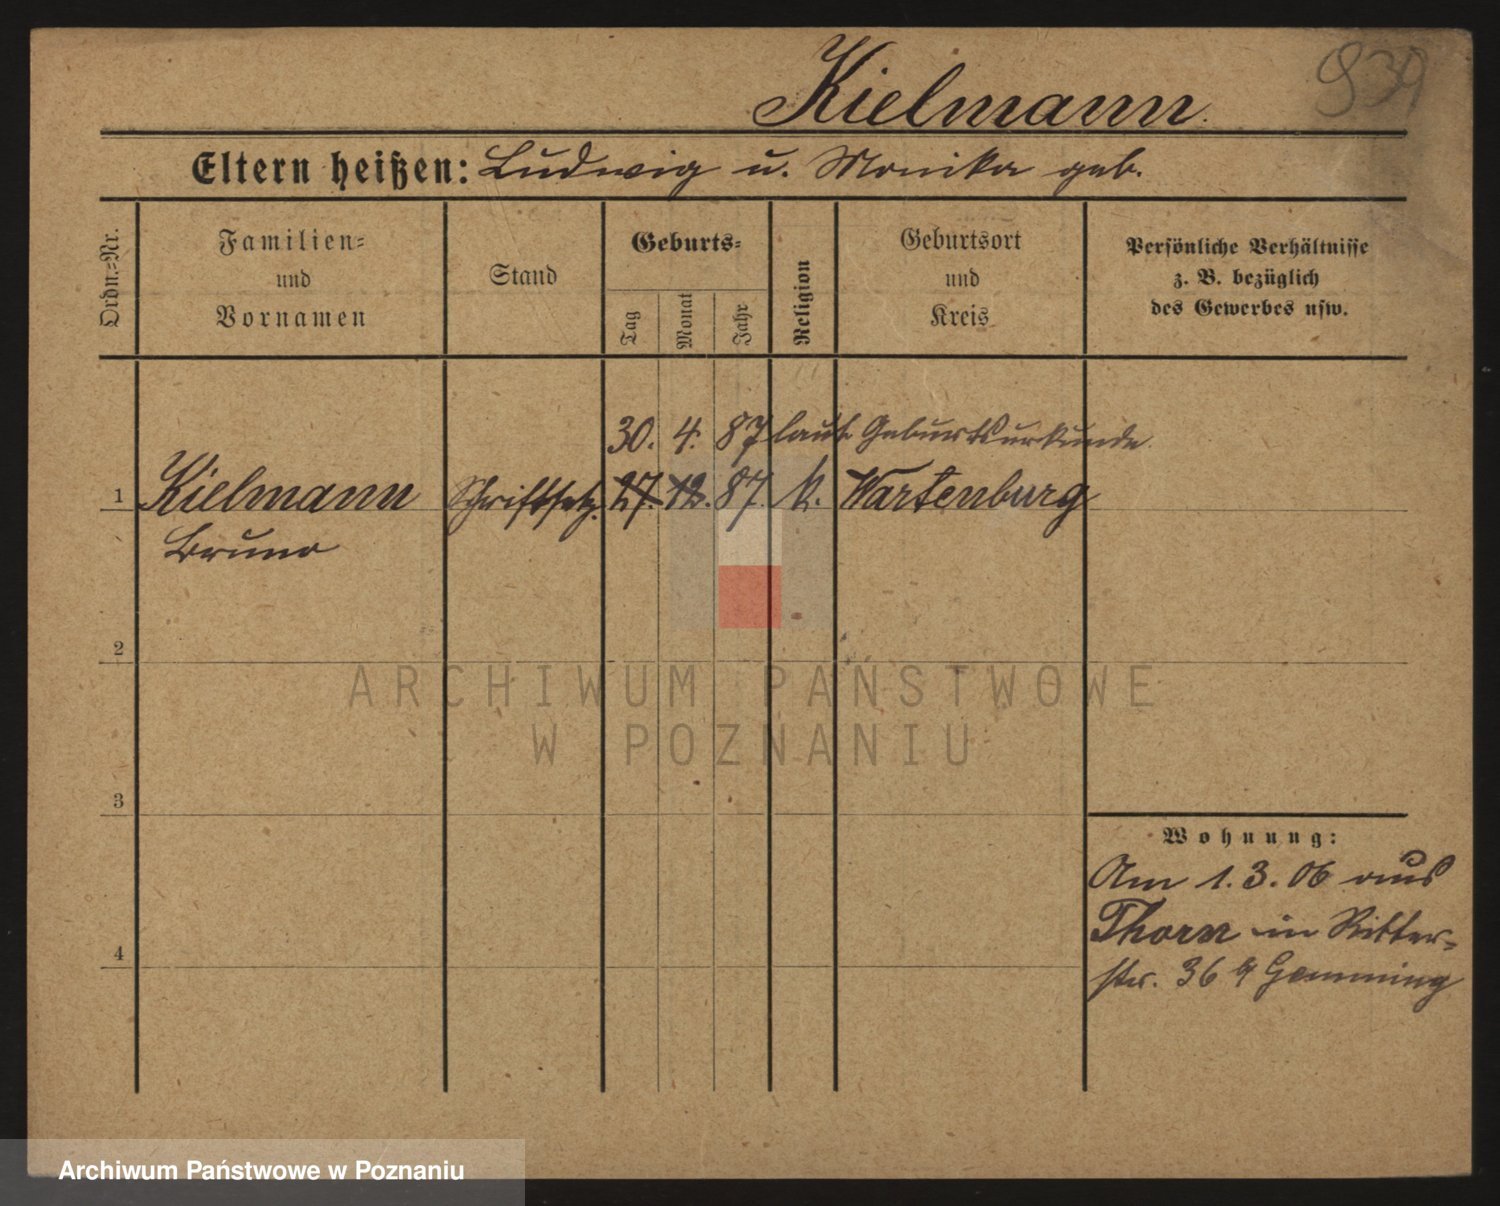 Kielmann.
939
Eltern heißen: Ludwig u. Monika geb.
Ordn.=Nr.
Familien=
und
Vornamen
Stand
Geburts=
Tag
Monat
Jahr
Religion
Geburtsort
und
Kreis
Persönliche Verhältnisse
z. B. bezüglich
des Gewerbes usw.
30. 4. 87 laut Geburtsurkunde
1 Kielmann Schriftsetz. 27. 12. 87. k. Wartenburg
Bruno
2
3
4
Wohnung:
Am 1.3.06 aus
Thorn in Ritter=
str. 36 Gemming
ARCHIWUM PAŃSTWOWE
W POZNANIU
Archiwum Państwowe w Poznaniu